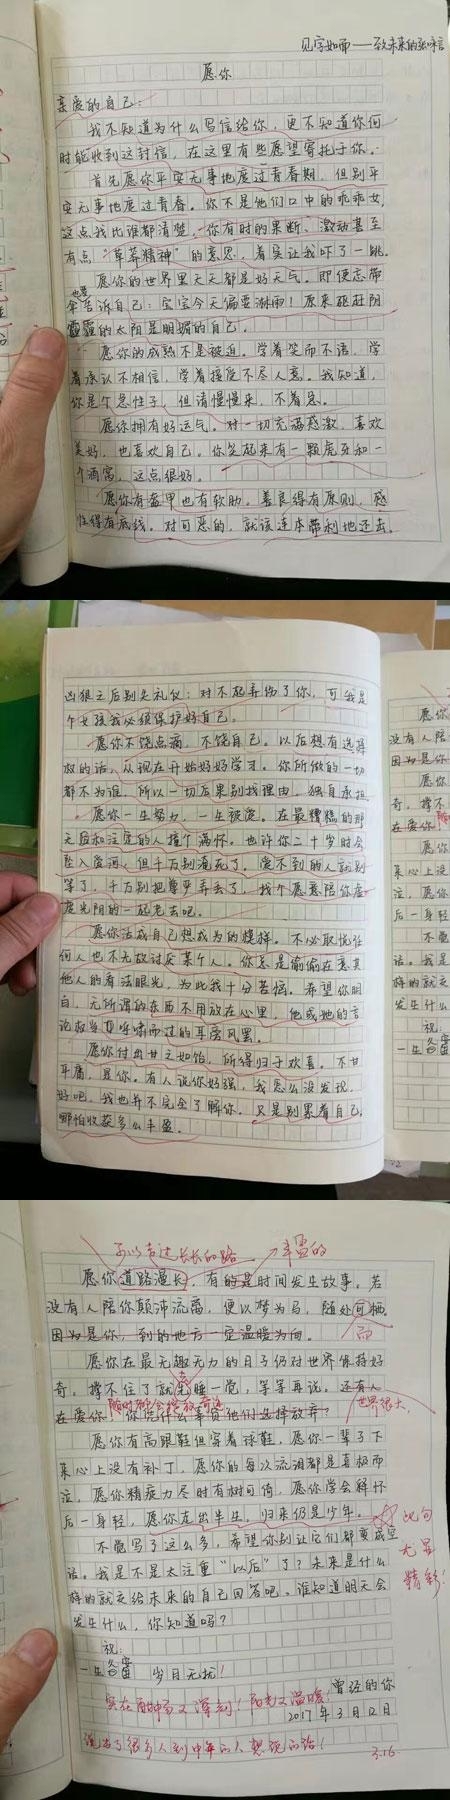 见字如面——致未来的张咪言
愿你
亲爱的自己：
我不知道为什么写信给你，更不知道你何
时能收到这封信，在这里有些愿望寄托于你。
首先愿你平安无事地度过青春期，但别平
安无事地度过青春。你不是他们口中的乖乖女，
这点我比谁都清楚，你有时的果断、激动甚至
有点“草莽精神”的意思，着实让我吓了一跳。
愿你的世界里天天都是好天气。即便忘带
伞也要告诉自己：宝宝今天偏要淋雨！原来砸赶阴
霾的太阳是明媚的自己。
愿你的成熟不是被迫。学着笑而不语，学
着承认不相信，学着接受不尽人意。我知道，
你是个急性子，但请慢慢来，不着急。
愿你拥有好运气。对一切充满感激，喜欢
美好，也喜欢自己。你笑起来有一颗虎牙和一
个酒窝，这点很好。
愿你有盔甲也有软肋。善良得有原则，感
性得有底线。对可恶的，就该连本带利地还击。
凶狠之后别失礼仪：对不起弄伤了你，可我是
个女孩我必须保护好自己。
愿你不饶点滴，不饶自己。以后想有选择
权的话，从现在开始好好学习。你所做的一切
都不为谁，所以一切后果别找理由，独自承担。
愿你一生努力，一生被爱。在最糟糕的那
天和注定的人撞个满怀。也许你二十岁时会
坠入爱河，但千万别淹死了，爱不到的人就别
等了，千万别把尊严弄丢了，找个愿意陪你虚
度光阴的一起老去吧。
愿你活成自己想成为的模样。不必取悦任
何人也不无故讨厌某个人。你总是偷偷在意其
他人的看法眼光，为此我十分苦恼。希望你明
白，无所谓的东西不用放在心里，他或她的言
论权当呼啸而过的耳旁风罢。
愿你付出甘之如饴，所得归于欢喜。不甘
平庸，是你。有人说你好强，我怎么没发现，
好吧，我也并不完全了解你。只是别累着自己，
哪怕收获多么丰盈。
可以书达长长的路
丰盈的
愿你道路漫长，有的是时间发生故事。若
没有人陪你颠沛流离，便以梦为马，随处可栖。
因为是你，到的地方一定温暖为向。
愿你在最无趣无力的日子仍对世界保持好
奇。撑不住了就先睡一觉，等等再说。还有人
随时都会绽放奇迹
世界很大，
在爱你，你凭什么辜负他们选择放弃？
愿你有高跟鞋但穿着球鞋，愿你一辈子下
来心上没有补丁，愿你的每次流泪都是喜极而
泣，愿你精疲力尽时有树可倚，愿你学会释怀
后一身轻，愿你走出半生，归来仍是少年。
此句
尤显
精彩！
不觉写了这么多，希望你别让它们都变成空
话。我是不是太注重“以后”了？未来是什么
样的就交给未来的自己回答吧。谁知道明天会
发生什么，你知道吗？
祝：
一生备蕾 岁月无忧！
曾经的你
2017年3月12日
实在酣畅又深刻！阳光又温暖！
说出了很多人到中年的人想说的话！
3.16